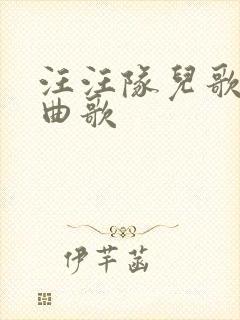 汪汪隊兒歌
曲歌
伊芊菡